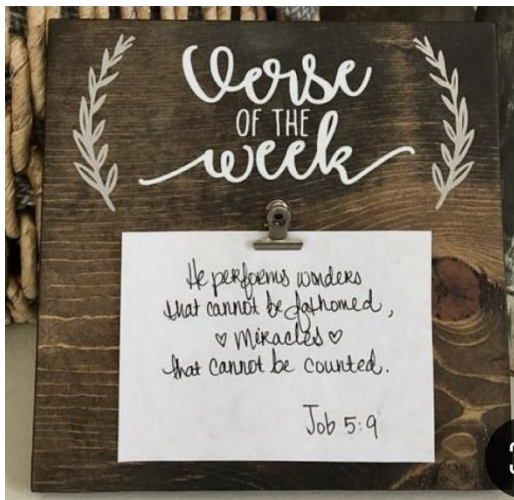 Verse
OF THE
week
He performs wonders
that cannot be fathomed,
♡ miracles ♡
that cannot be counted.
Job 5:9